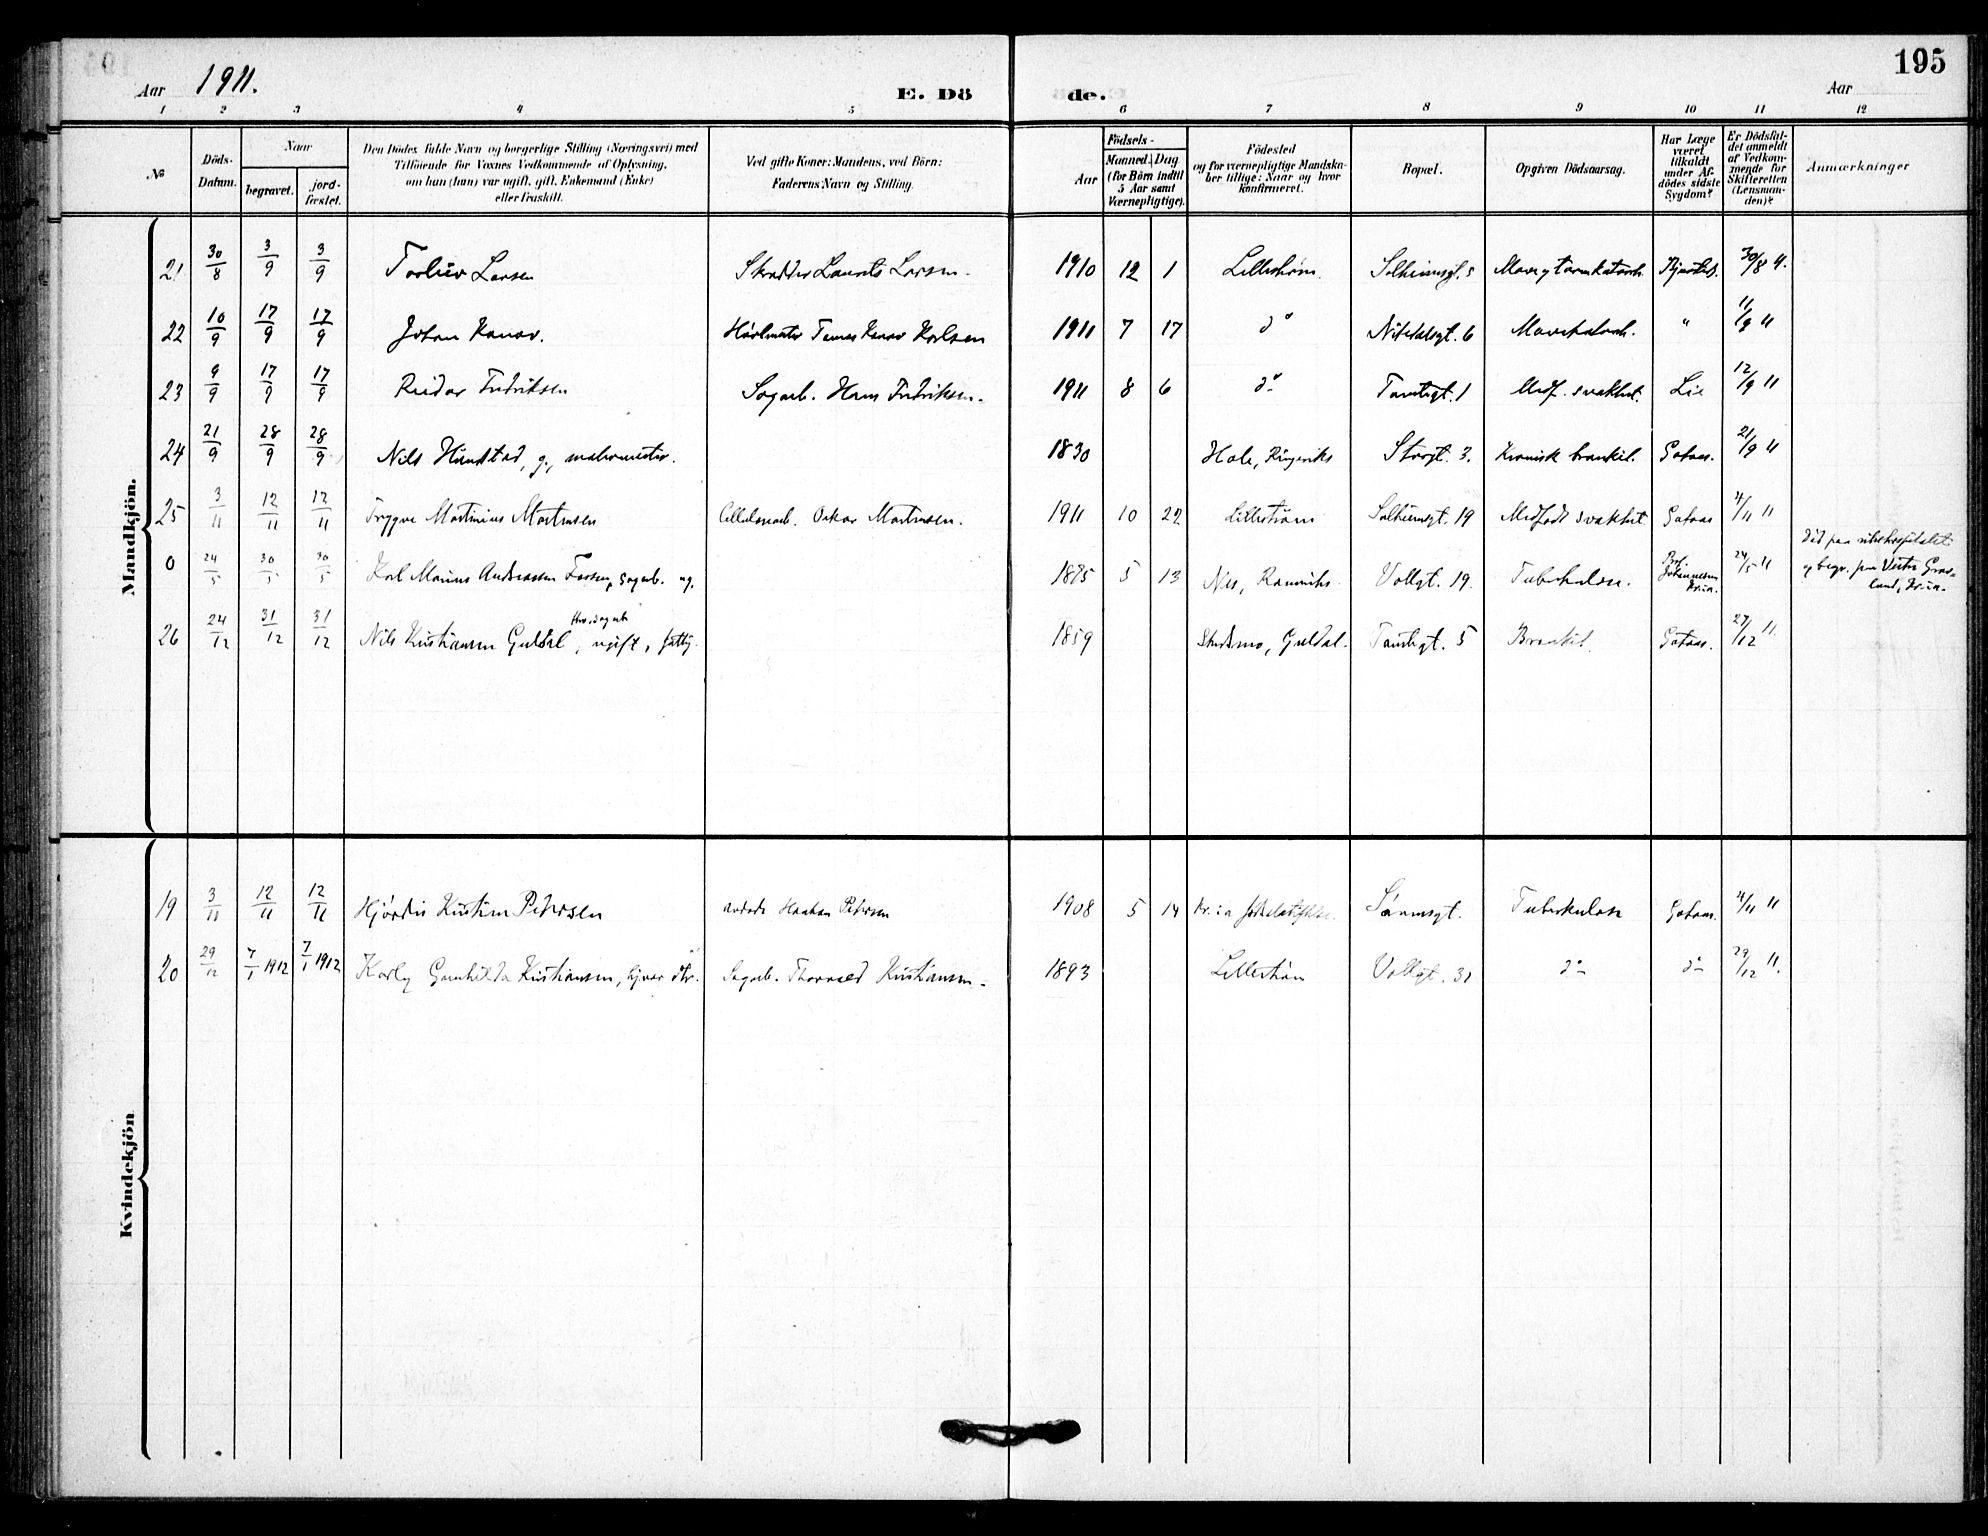 195
Aar 1911. E. Dö de. Aar
1 2 3 4 5 6 7 8 9 10 11 12
No
Döds-Datum.
Naar
begravet.
jord-fæstet.
Den Dödes fulde Navn og borgerlige Stilling (Næringsvei) med
Tilföiende for Voxnes Vedkommende af Oplysning,
om han (hun) var ugift, gift, Enkemand (Enke)
eller fraskilt.
Ved gifte Koner: Mandens, ved Börn:
Faderens Navn og Stilling.
Aar
Födsels-
Maaned. Dag
(for Börn indtil
5 Aar samt
Værnepligtige).
Födested
og for værnepligtige Mandska-
ber tillige: Naar og hvor
konfirmeret.
Bopæl.
Opgiven Dödsaarsag.
Har Læge
været
tilkaldt
under Af-
dödes sidste
Sygdom?
Er Dödsfal-
det anmeldt
af Vedkom-
mende for
Skifteretten
(Lensman-
den)?
Anmærkninger
Mandkjön.
21 30/8 3/9 3/9 Torleiv Larsen Skrædder Laurits Larsen. 1910 12 1 Lillestrøm. Solheimsgt. 5 Mave og tarmkatarrh. 30/8 11.
22 10/9 17/9 17/9 Johan Kanov. Karlsen 1911 7 17 do Nitedalsgt. 6 Mavekatarrh. " 11/9 11
23 9/9 17/9 17/9 Reidar Fredriksen Sagarb. Hans Fredriksen. 1911 8 6 do Tomtegt. 1 Medf. svakhet. Lie 12/9 11
24 21/9 28/9 28/9 Nils g., malermester. 1830 Hole, Ringerike Storgt. 3. Kronisk bronkit. Gotaas. 21/9 11
25 3/11 12/11 12/11 Trygve Martinius Martinsen Cellulosearb. Oskar Martinsen. 1911 10 22 Lillestrøm Solheimsgt. 19 Medfødt svakhet Gotaas 4/11 11
Død paa rikshospitalet
0 24/5 30/5 30/5 Karl Marius Andreassen sagarb. ug. 1875 5 13 Nes, Romerike Vollgt. 19. Tuberkulose. Prof. Johannesen Kr.ia. 24/5 11 og begr. paa Vestre Grav-
lund, Kr.ia.
26 24/12 31/12 31/12 Nils Kristiansen Guldal, ugift, fattig. 1859 Guldal. Tomtegt. 5 Bronkit. Gotaas. 27/12 11.
Kvindekjön
19 3/11 12/11 12/11 Hjørdis Kristine Petersen Haakon Petersen 1908 5 14 Kr.ia Tuberkulose Gotaas. 4/11 11
20 29/12 7/1 1912 7/1 1912 Karly Gunhilda Kristiansen, hjvær. dtr. Sagarb. Thorvald Kristiansen. 1893 Lillestrøm Vollgt. 31 do do 29/12 11.